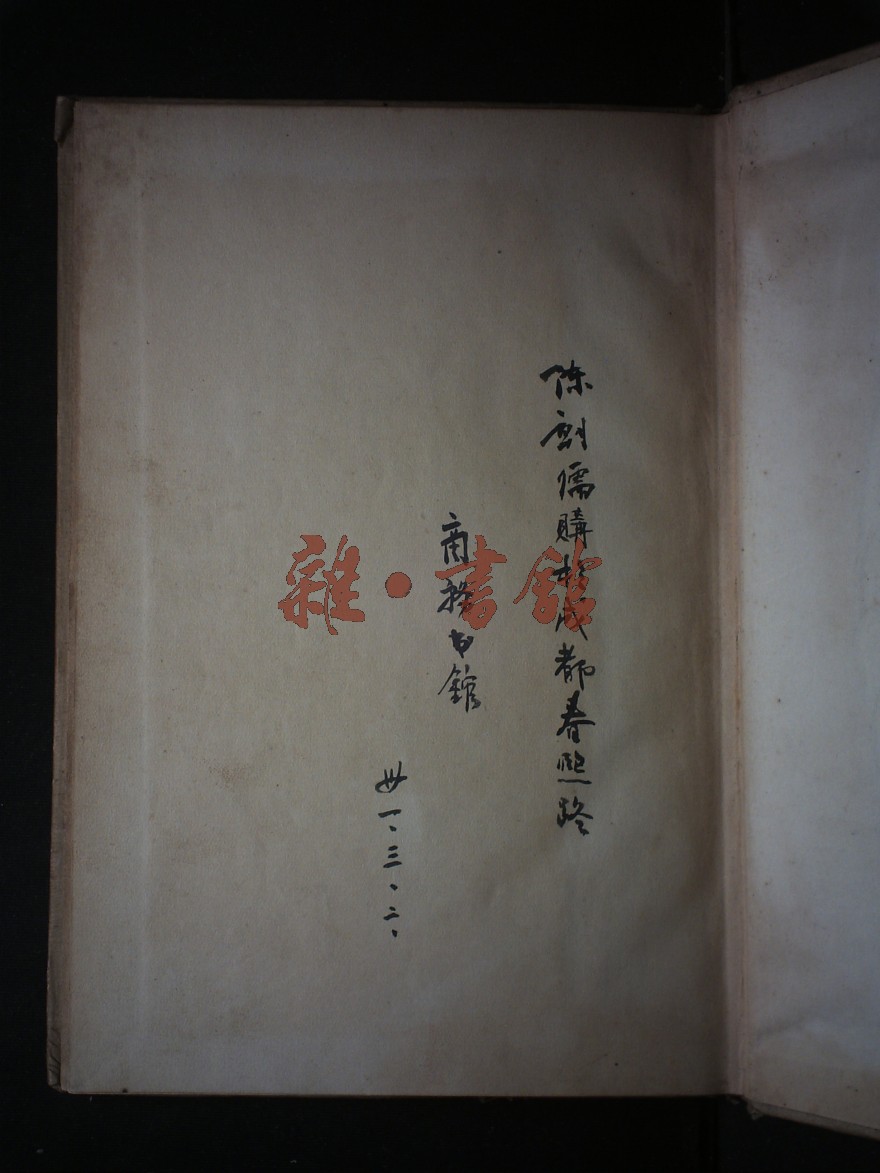 陈剑儒購於成都春熙路
商務书館
卅一、三、二、
雜·書館